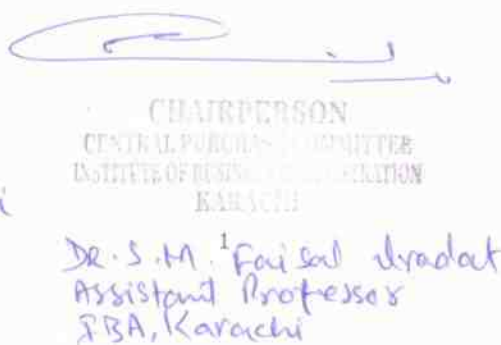 CHAIRPERSON
CENTRAL PURCHASE COMMITTEE
INSTITUTE OF BUSINESS ADMINISTRATION
KARACHI
1
DR. S. M. Faisal Iradat
Assistant Professor
IBA, Karachi